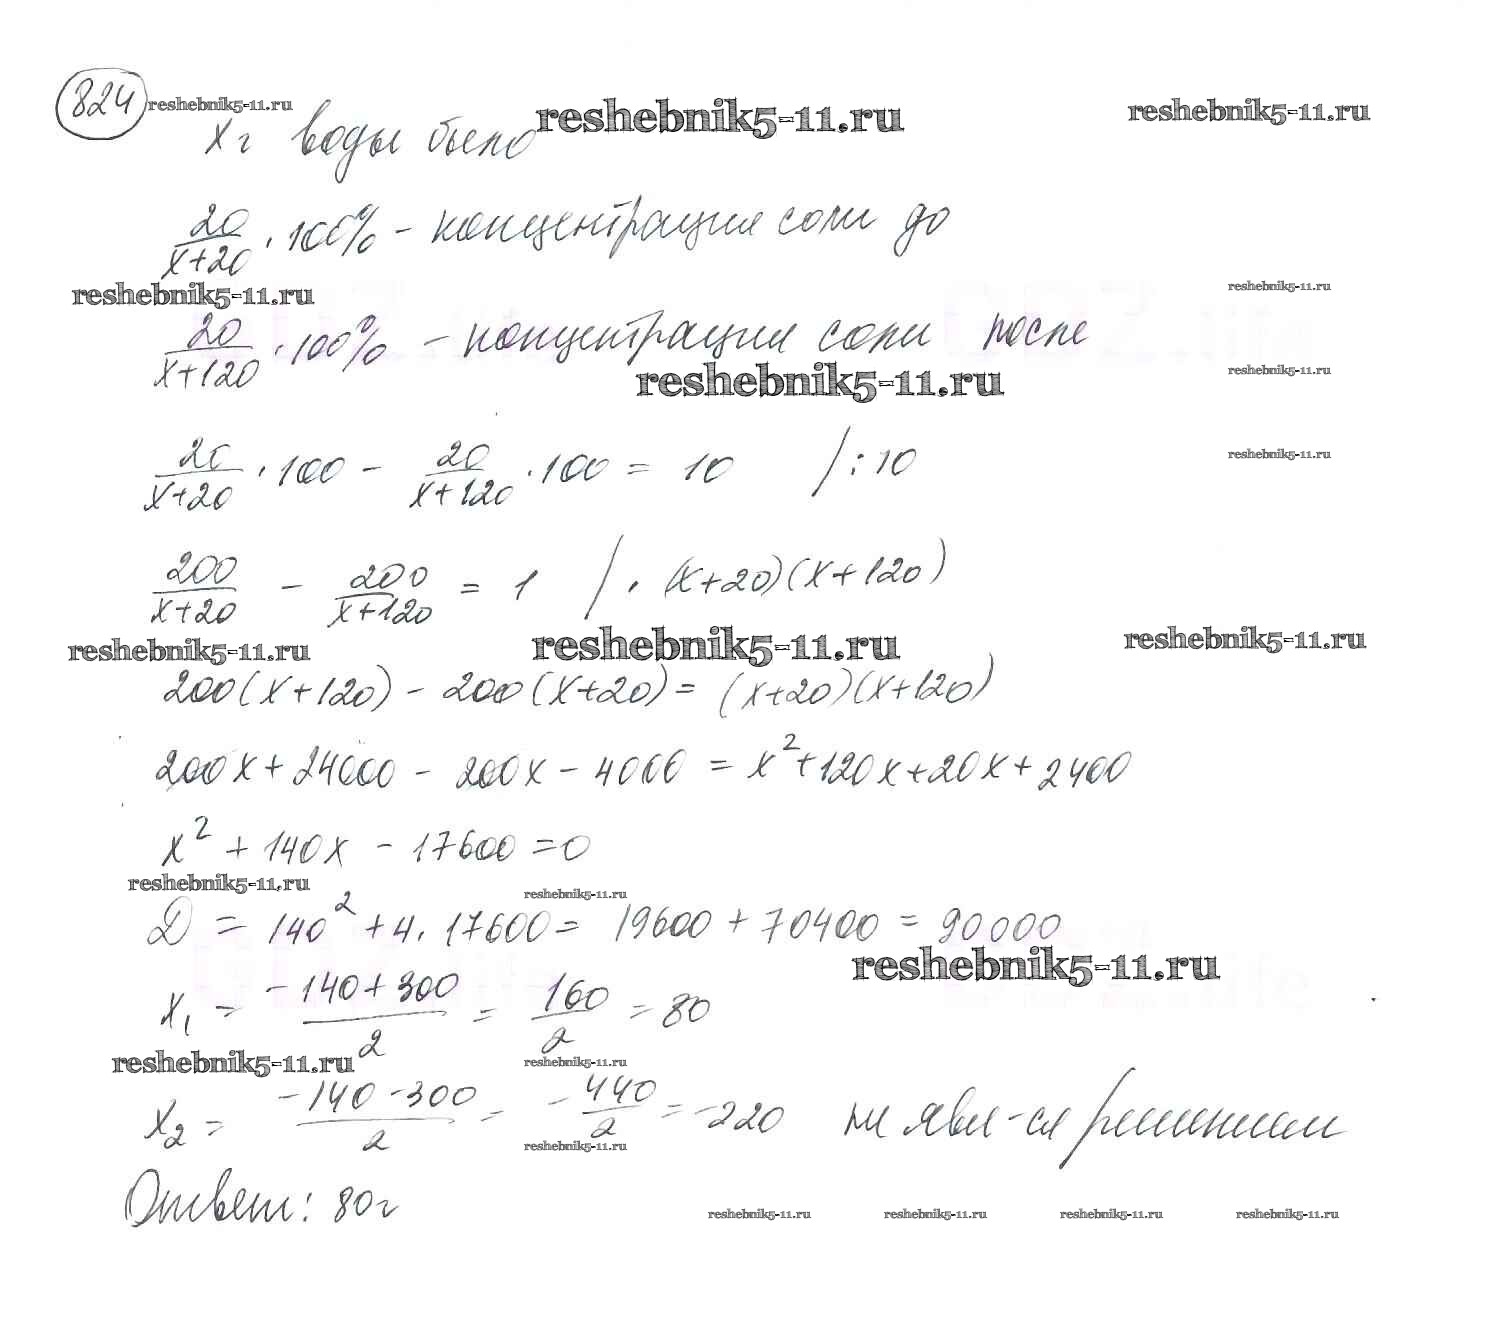 824 reshebnik5-11.ru reshebnik5-11.ru reshebnik5-11.ru
x г воды было
20/(x+20) · 100% – концентрация соли до
reshebnik5-11.ru reshebnik5-11.ru
20/(x+120) · 100% – концентрация соли после
reshebnik5-11.ru reshebnik5-11.ru
20/(x+20) · 100 – 20/(x+120) · 100 = 10 /: 10
reshebnik5-11.ru
200/(x+20) – 200/(x+120) = 1 / · (x+20)(x+120)
reshebnik5-11.ru reshebnik5-11.ru reshebnik5-11.ru
200(x+120) – 200(x+20) = (x+20)(x+120)
200x + 24000 – 200x – 4000 = x² + 120x + 20x + 2400
x² + 140x – 17600 = 0
reshebnik5-11.ru reshebnik5-11.ru
D = 140² + 4 · 17600 = 19600 + 70400 = 90000
reshebnik5-11.ru
x₁ = (–140+300)/2 = 160/2 = 80
reshebnik5-11.ru reshebnik5-11.ru
x₂ = (–140–300)/2 = –440/2 = –220 не явл-ся решением
reshebnik5-11.ru
Ответ: 80г
reshebnik5-11.ru reshebnik5-11.ru reshebnik5-11.ru reshebnik5-11.ru